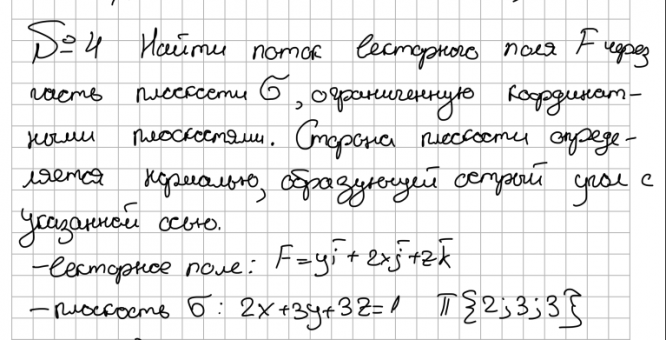 № 4 Найти поток векторного поля F через
часть плоскости σ, ограниченную координат-
ными плоскостями. Сторона плоскости опреде-
ляется нормалью, образующей острый угол с
указанной осью.
- векторное поле: F = yi̅ + 2xj̅ + zk̅
- плоскость σ: 2x+3y+3z=1 π{2;3;3}